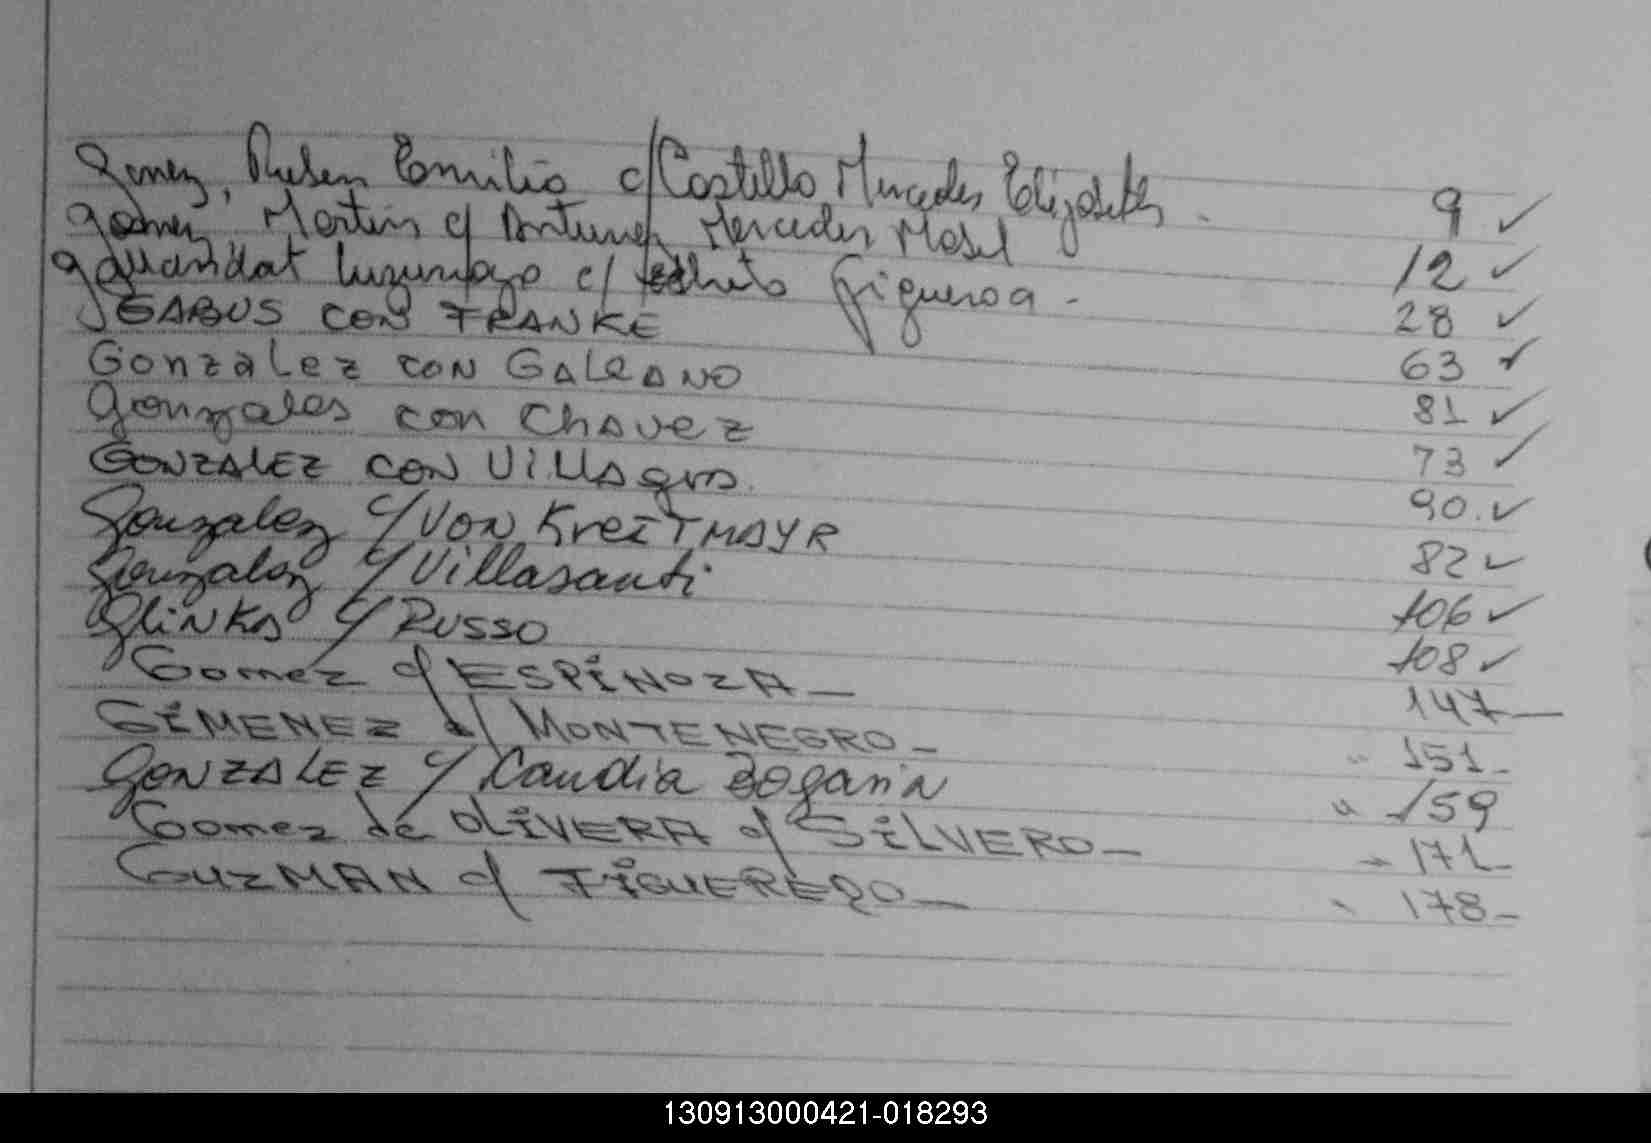 Gomez, Ruben Emilio c/ Costillo Mercedes Elizabeth. 9 ✓
Gomez, Martin c/ Antunez Mercedes Mabel 12 ✓
c/ Figueroa - 28 ✓
GABUS CON FRANKE 63 ✓
Gonzalez CON GALEANO 81 ✓
Gonzales con Chavez 73 ✓
GONZALEZ CON Villagra. 90. ✓
Gonzalez c/ VON KreITMAYR 82 ✓
Gonzalez c/ Villasanti 106 ✓
GLINKA c/ RUSSO 108 ✓
Gomez c/ ESPINOZA - 147 -
GIMENEZ c/ MONTENEGRO - " 151 -
GONZALEZ c/ Caudia Bogarin " 159
Gomez de OLIVERA c/ SILVERO - " 171 -
GUZMAN c/ FIGUEREDO - " 178 -
130913000421-018293